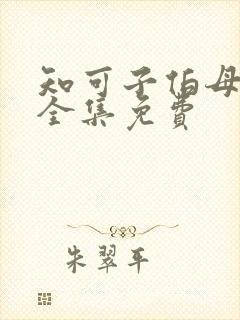 知可子伯母
全集免費
朱翠平